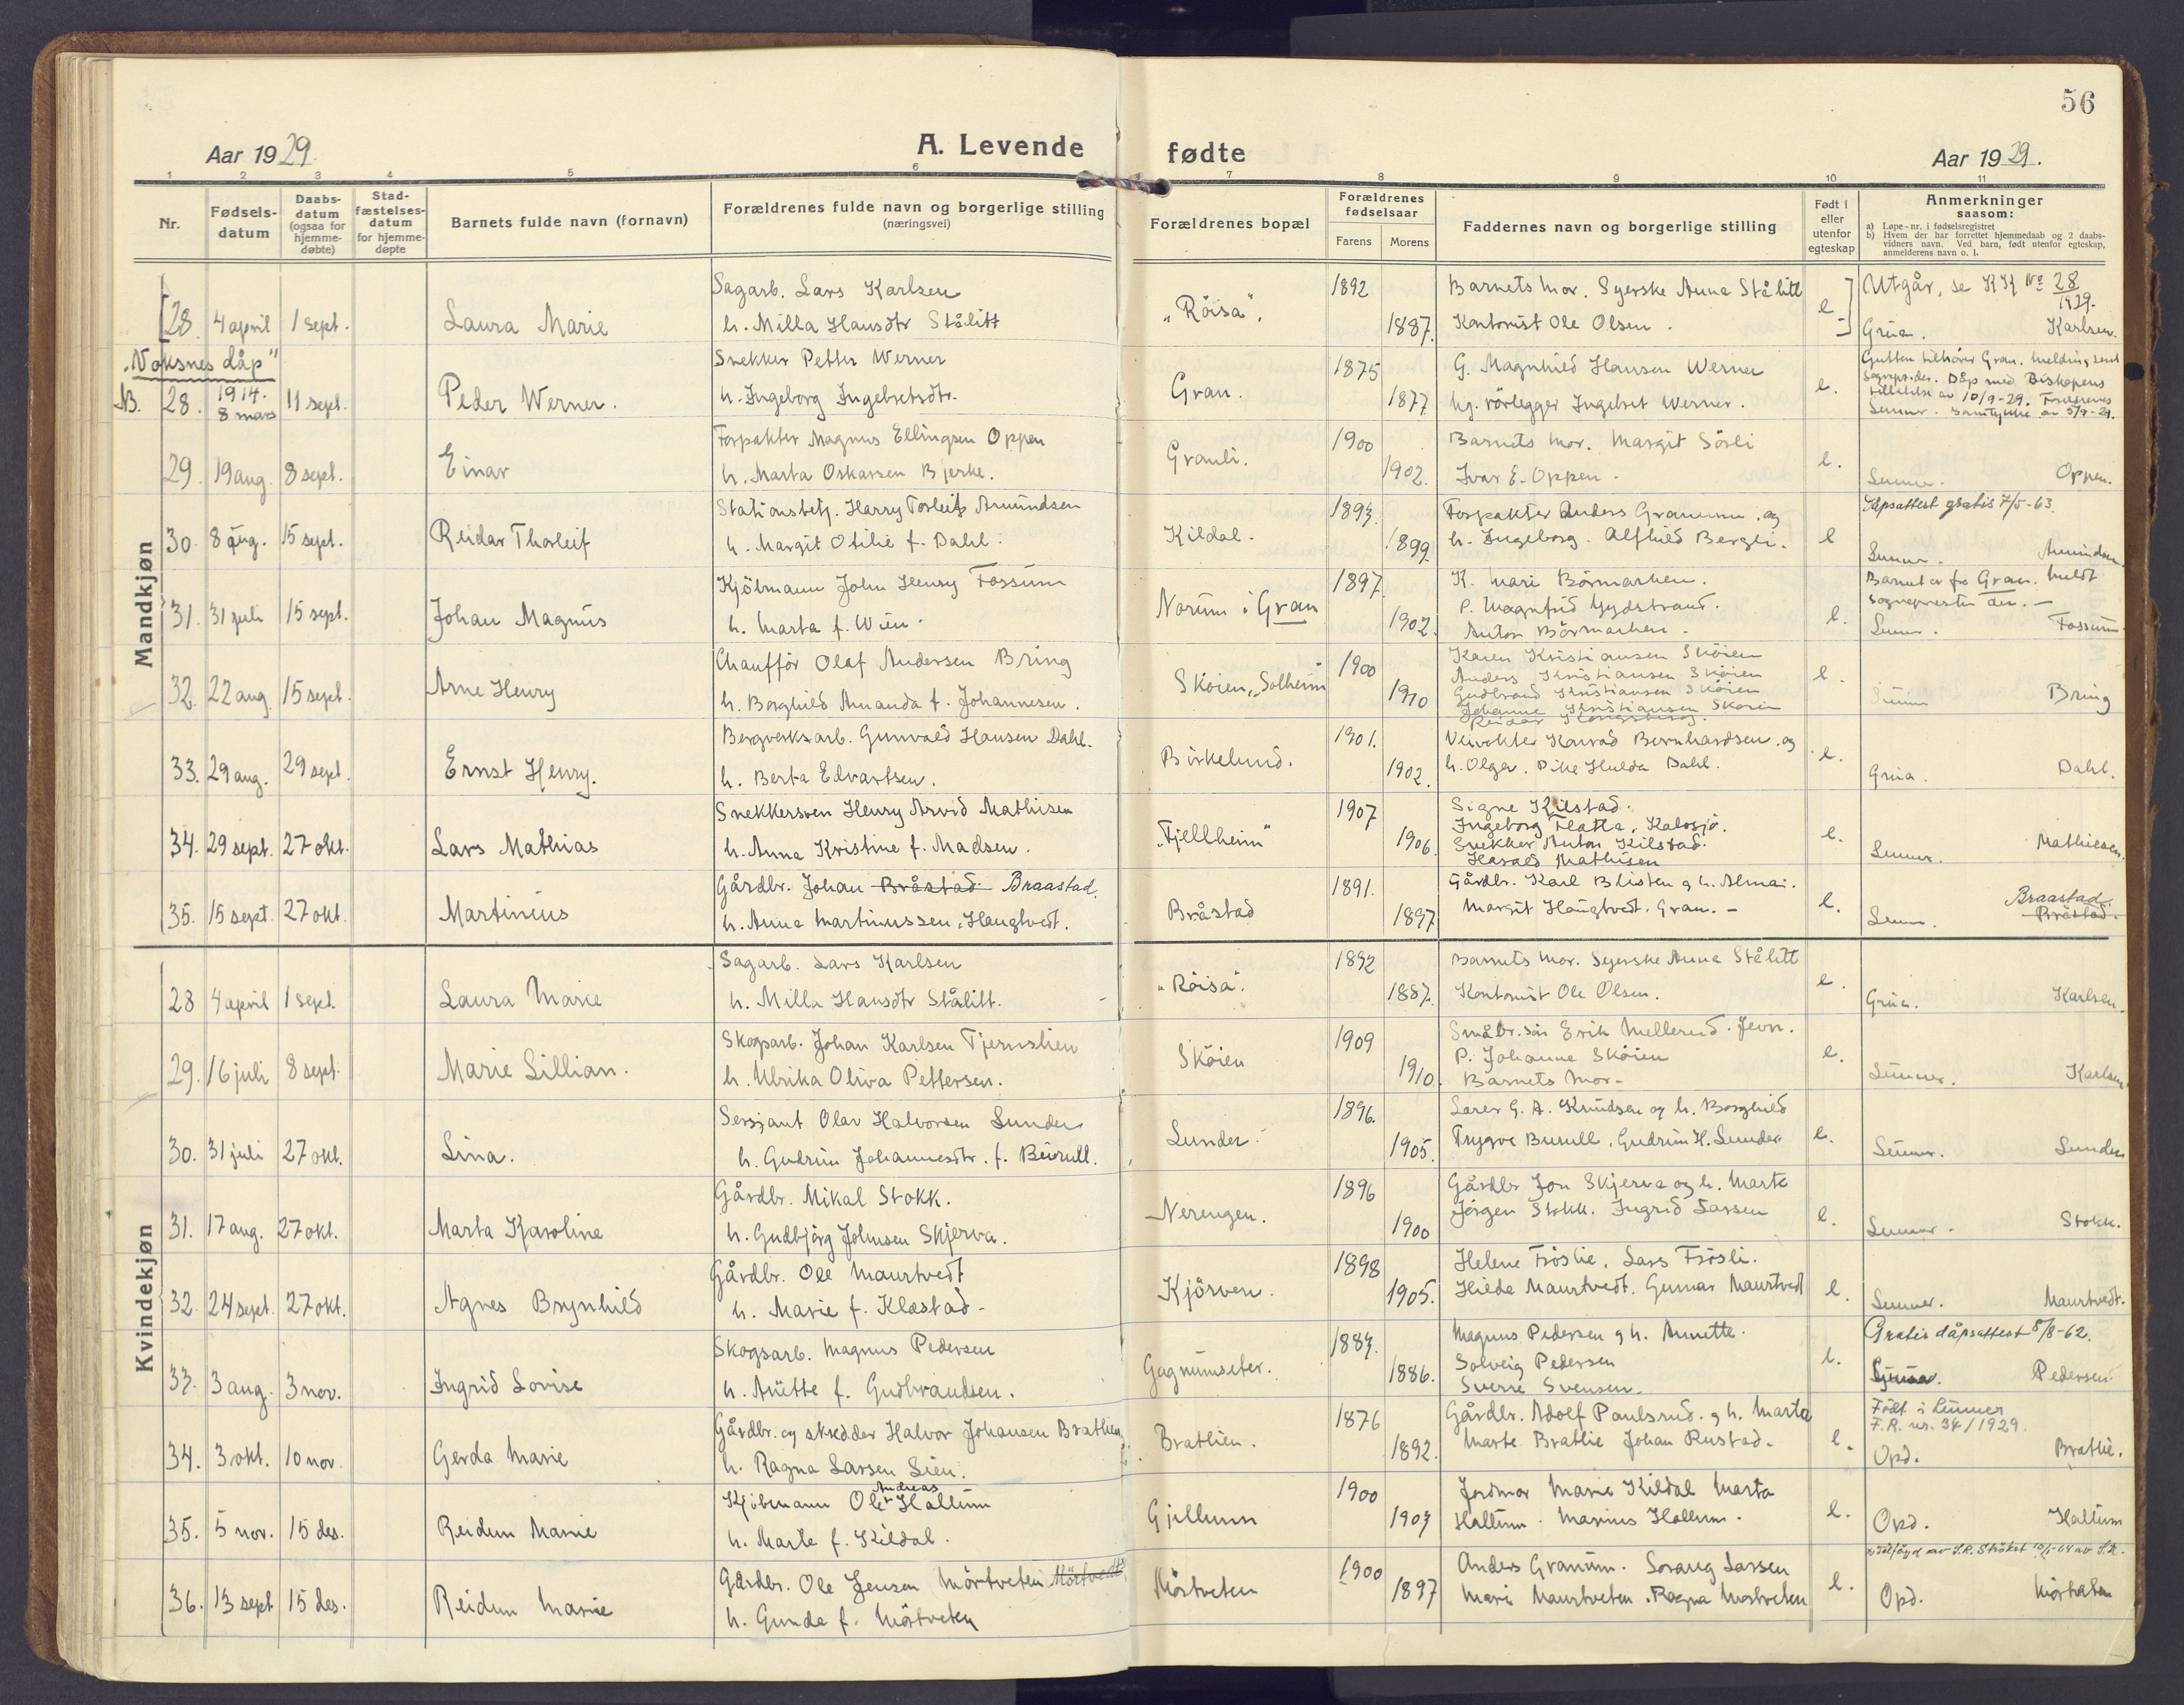 56
Aar 1929.
A. Levende
fødte
Aar 1929.
1 2 3 4 5 6 7 8 9 10 11
Nr.
Fødsels-
datum
Daabs-
datum
(ogsaa for
hjemme-
døbte)
Stad-
fæstelses-
datum
for hjemme-
døpte
Barnets fulde navn (fornavn)
Forældrenes fulde navn og borgerlige stilling
(næringsvei)
Forældrenes bopæl
Forældrenes
fødselsaar
Farens Morens
Faddernes navn og borgerlige stilling
Født i
eller
utenfor
egteskap
Anmerkninger
saasom:
a) Løpe-nr. i fødselsregistret
b) Hvem der har forrettet hjemmedaab og 2 daabs-
vidners navn. Ved barn, født utenfor egteskap,
anmelderens navn o. l.
Mandkjøn
Sagarb. Lars Karlsen 1892 Barnets mor. Syerske Anna Stålitt Utgår, se KK No 28
1929.
[28 4 april 1 sept. Laura Marie h. Milla Hansdtr Stålitt "Röisa". 1887. Kontorist Ole Olsen. e. Grua. Karlsen.
"Voksnes dåp"
Snekker Petter Werner 1875 G. Magnhild Hansen Werner Gutten tilhörer Gran. Melding sent
sogneprs. der. Dåp med Biskopens
NB. 28. 1914. 8 mars 11 sept. Peder Werner. h. Ingeborg Ingebretsdtr. Gran. 1877 hg. rörlegger Ingebret Werner. e. tillatelse av 10/9-29. Foreldrenes
Lunner. samtykke av 5/9-29.
Forpakter Magnus Ellingsen Oppen 1900 Barnets mor. Margit Sörli
29. 19 aug. 8 sept. Einar h. Marta Oskarsen Bjerke. Grauli. 1902. Ivar E. Oppen. e. Lunner. Oppen.
Stationsbetj. Harry Torleif Amundsen 1893. Forpakter Anders Granum. og Dåpsattest gratis 7/5-63.
30. 8 aug. 15 sept. Reidar Thorleif h. Margit Otilie f. Dahl. Kildal. 1899. h. Ingeborg. Alfhild Bergli. e Lunner. Amundsen
Kjöbmann John Henry Fossum 1897. K. Mari Börmarken. Barnet er fra Gran. Meldt
P. Magnhild Nydstrand. sognepresten der.
31. 31 juli 15 sept. Johan Magnus h. Marta f. Wien. Norum i Gran 1902. Anton Börmarken. e. Lunner. Fossum
Chaufför Olaf Andersen Bring 1900 Karen Kristiansen Sköien
Anders Kristiansen Sköien
32. 22 aug. 15 sept. Arne Henry h. Borghild Amanda f. Johannesen. Sköien, "Solheim" 1910 Gudbrand Kristiansen Sköien e. Lunner Bring
Johanne Kristiansen Sköien
Reidar Kongsberg.
Bergverksarb. Gunvald Hansen Dahl. 1901. Veivokter Konrad Bernhardsen. og
33. 29 aug. 29 sept. Ernst Henry. h. Berta Edvartsen. Birkelund. 1902. h. Olga. Pike Hulda Dahl. e. Grua. Dahl.
Snekkersven Henry Arvid Mathisen 1907 Signe Kilstad.
Ingeborg Flatla, Kalvsjö.
34. 29 sept. 27 okt. Lars Mathias h. Anna Kristine f. Madsen. "Fjellheim" 1906. Snekker Anton Kilstad. e. Lunner. Mathiesen.
Harald Mathisen
Gårdbr. Johan Bråstad Braastad. 1891. Gårdbr. Karl Blisten og h. Alma. Braastad.
35. 15 sept. 27 okt. Martinius h. Anna Martinussen, Haugtvedt. Bråstad 1897 Margit Haugtvedt. Gran. e. Lunn. Bråstad.
Kvindekjøn
Sagarb. Lars Karlsen 1892 Barnets mor. Syerske Anna Stålitt
28 4 april 1 sept. Laura Marie h. Milla Hansdtr Stålitt. "Röisa". 1887. Kontorist Ole Olsen. e. Grua. Karlsen.
Skogsarb. Johan Karlsen Tjernslien 1909 Småbr. sön Erik Mellerud. Jevn.
P. Johanne Sköien
29. 16 juli 8 sept. Marie Lillian. h. Ulrika Oliva Pettersen. Sköien 1910. Barnets mor. e. Lunner. Karlsen
Sersjant Olav Halvorsen Lunder 1896. Lærer G. A. Knudsen og h. Borghild
30. 31 juli 27 okt. Lina. h. Gudrun Johannesdtr. f. Burull. Lunder. 1905. Trygve Burull, Gudrun H. Lunder. e. Lunner. Lunder
Gårdbr. Mikal Stokk. 1896 Gårdbr Jon Skjerva og h. Marte
31. 17 aug. 27 okt. Marta Karoline h. Gudbjörg Johnsen Skjerva. Nerengen. 1900 Jörgen Stokk. Ingrid Larsen e. Lunner. Stokk.
Gårdbr. Ole Maurtvedt 1898 Helene Fröslie, Lars Frösli.
32. 24 sept. 27 okt. Agnes Brynhild h. Marie f. Klæstad. Kjörven. 1905. Hilda Maurtvedt. Gunnar Maurtvedt e. Lunner. Maurtvedt.
Skogsarb. Magnus Pedersen 1884. Magnus Pedersen og h. Annette. Gratis dåpsattest 8/8-62.
33. 3 aug. 3 nov. Ingrid Lovise h. Anette f. Gudbrandsen. Gagnumseter. 1886. Solveig Pedersen e. Pedersen
Sverre Svensen.
Gårdbr. og skredder Halvor Johansen Brathien 1876 Gårdbr. Adolf Paulsrud. og h. Marta Födt i Lunner
F.R. nr. 34/1929.
34. 3 okt. 10 nov. Gerda Marie h. Ragna Larsen Lien. Brathien. 1892. Marte Brathie Johan Rustad. e. Opd. Brathie.
Andreas
Kjöbmann Ole Hallum 1900 Jordmor Marie Kildal Marta
35. 5 nov. 15 des. Reidun Marie h. Marte f. Kildal. Gjellum 1904 Hallum. Marius Hallum. e. Opd. Hallum
Gårdbr. Ole Jensen Mörtveten Mörtvedt 1900 Anders Granum. Solaug Larsen
36. 13 sept 15 des. Reidun Marie h. Gunda f. Mörtveten Mörtveten 1897 Mari Maurtveten. Ragna Mörtveten e. Opd. Mörtveten